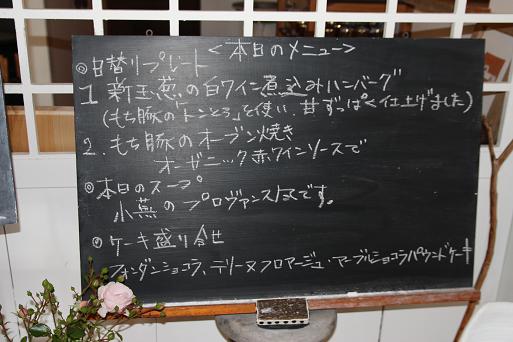 <本日のメニュー>
◎日替りプレート
1 新玉葱の白ワイン煮込みハンバーグ
(もち豚の「トンとろ」を使い、甘ずっぱく仕上げました)
2. もち豚のオーブン焼き
オーガニック赤ワインソースで
◎本日のスープ
小蕪のプロヴァンス風です。
◎ケーキ盛り合せ
フォンダンショコラ、テリーヌフロマージュ・マーブルショコラパウンドケーキ